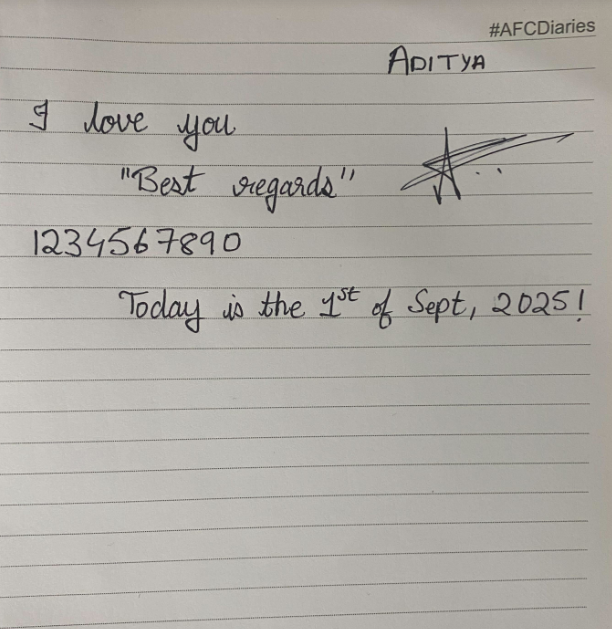 #AFCDiaries
ADITYA
I love you
"Best regards"
1234567890
Today is the 1st of Sept, 2025!